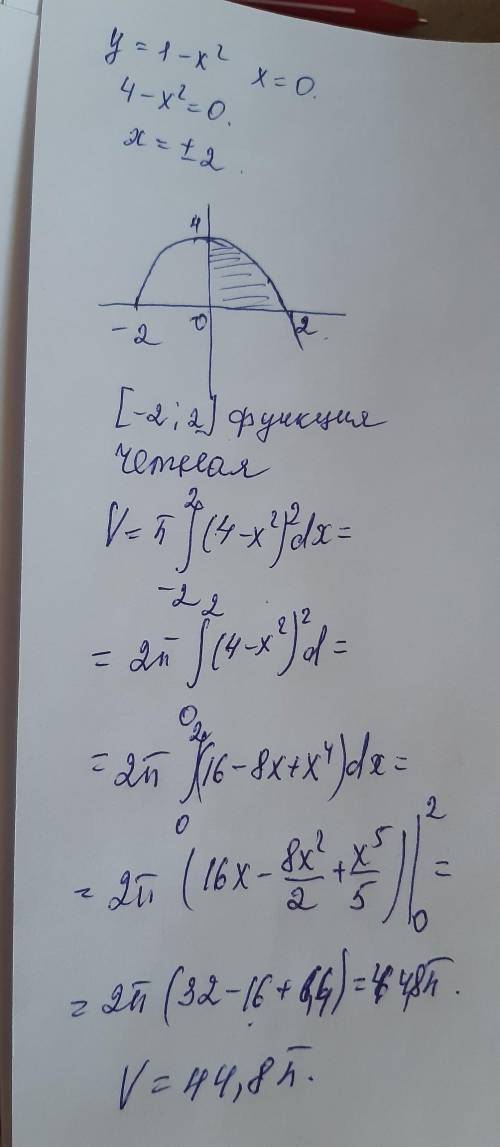 y = 1 - x²   x = 0.
4 - x² = 0.
x = ± 2.
4
-2 0 2.
[-2; 2] функция
четная
V = π ∫₋₂² (4 - x²)² dx =
= 2π ∫₀² (4 - x²)² d =
= 2π ∫₀² (16 - 8x + x⁴) dx =
= 2π (16x - 8x²/2 + x⁵/5) |₀² =
= 2π (32 - 16 + 6,4) = 44,8π.
V = 44,8π.